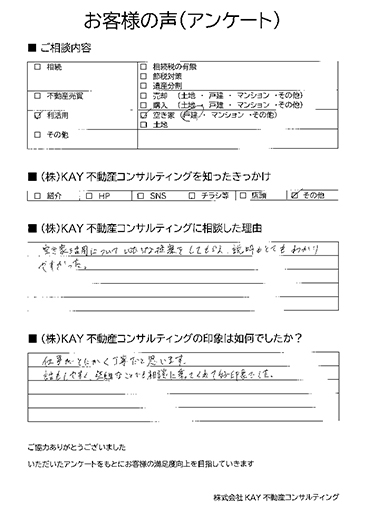 お客様の声(アンケート)
■ ご相談内容
□ 相続
□ 相続税の有無
□ 節税対策
□ 遺産分割
□ 不動産売買
□ 売却 (土地 ・ 戸建 ・ マンション ・その他)
□ 購入 (土地 ・ 戸建 ・ マンション ・その他)
☑ 利活用
☑ 空き家 (戸建 ・ マンション ・その他)
□ 土地
□ その他
■ (株)KAY 不動産コンサルティングを知ったきっかけ
□ 紹介 □ HP □ SNS □ チラシ等 □ 店頭 ☑ その他
■ (株)KAY 不動産コンサルティングに相談した理由
空き家活用について いろいろな提案をしてもらえ、説明もとても わかり
やすかった。
■ (株)KAY 不動産コンサルティングの印象は如何でしたか?
仕事がとにかく丁寧だと思います。
話もしやすく、なことでも相談に乗ってくれて好印象でした。
ご協力ありがとうございました
いただいたアンケートをもとにお客様の満足度向上を目指していきます
株式会社 KAY 不動産コンサルティング